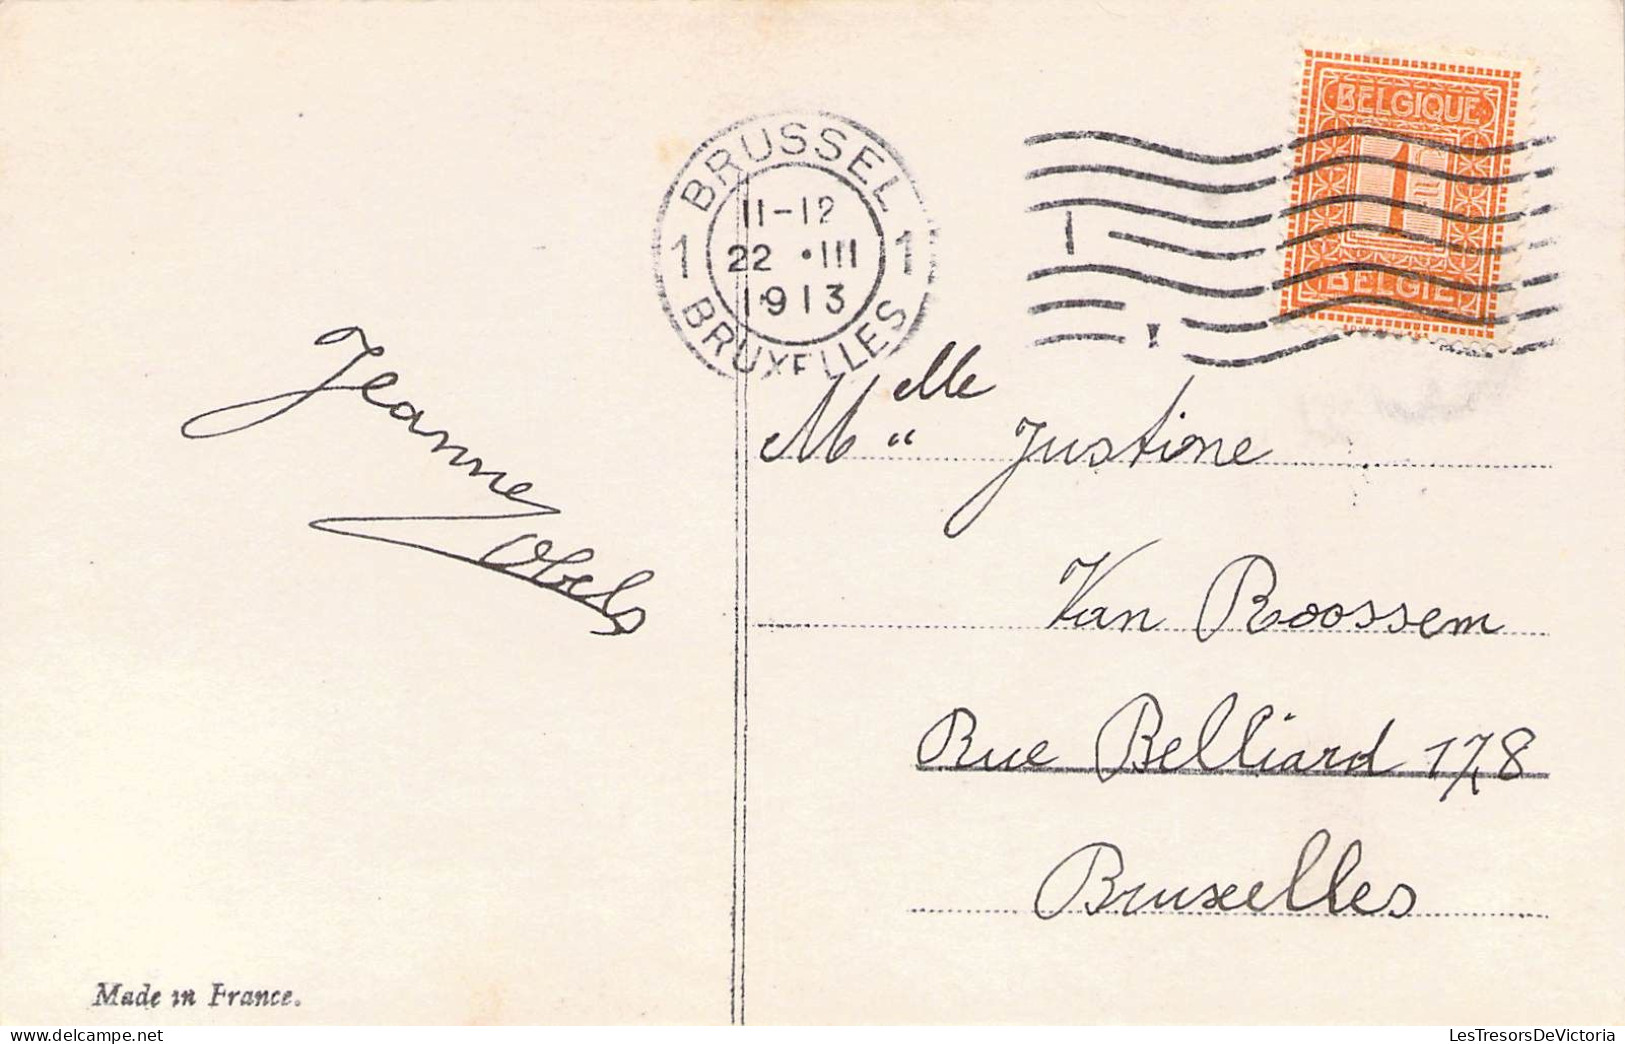 BRUSSEL
11-12
22 •III
1913
1 1
BRUXELLES
BELGIQUE
1
BELGIË
Jeanne
Melle Justine
Van Roossem
Rue Belliard 178
Bruxelles
Made in France.
LesTresorsDeVictoria